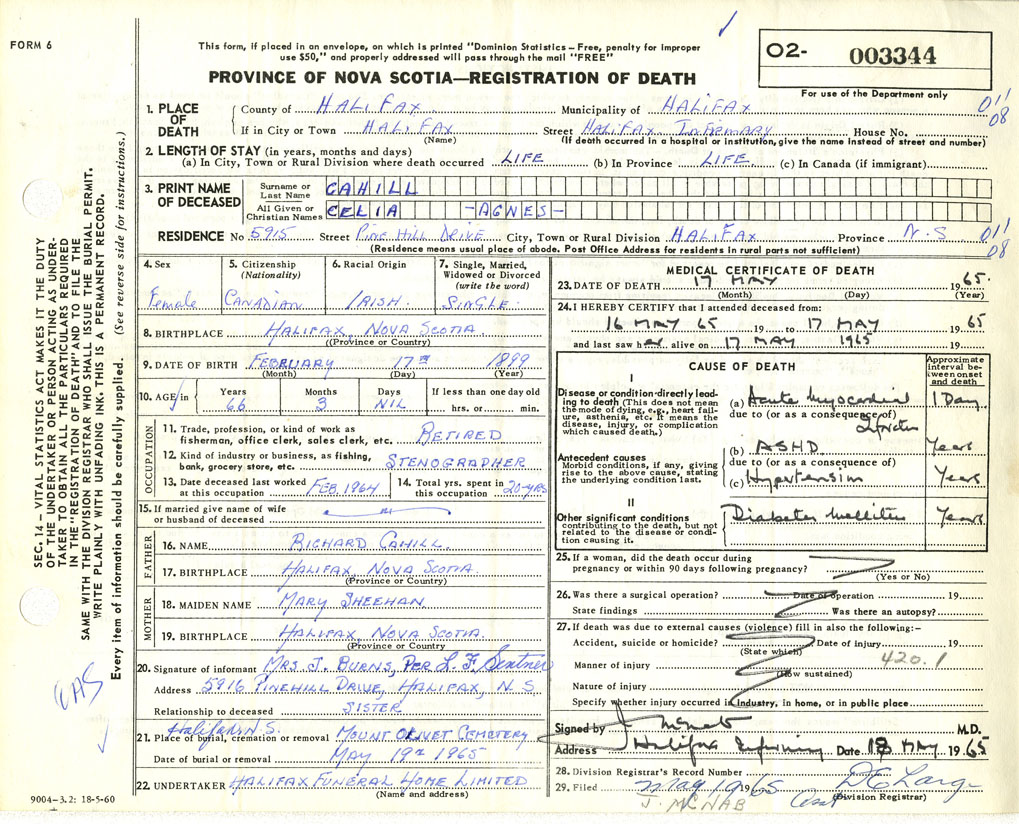 FORM 6
This form, if placed in an envelope, on which is printed "Dominion Statistics – Free, penalty for improper
use $50," and properly addressed will pass through the mail "FREE"
PROVINCE OF NOVA SCOTIA—REGISTRATION OF DEATH
02- 003344
For use of the Department only
1. PLACE OF DEATH
County of HALIFAX Municipality of HALIFAX 011
If in City or Town HALIFAX Street HALIFAX INFIRMARY House No. 08
(Name) (If death occurred in a hospital or institution, give the name instead of street and number)
2. LENGTH OF STAY (in years, months and days)
(a) In City, Town or Rural Division where death occurred LIFE (b) In Province LIFE (c) In Canada (if immigrant)
3. PRINT NAME OF DECEASED
Surname or Last Name CAHILL
All Given or Christian Names CELIA -AGNES-
RESIDENCE No 5915 Street PINE HILL DRIVE City, Town or Rural Division HALIFAX Province N.S 011
(Residence means usual place of abode. Post Office Address for residents in rural parts not sufficient) 08
4. Sex Female
5. Citizenship (Nationality) CANADIAN
6. Racial Origin IRISH.
7. Single, Married, Widowed or Divorced (write the word) SINGLE
8. BIRTHPLACE HALIFAX, NOVA SCOTIA
(Province or Country)
9. DATE OF BIRTH FEBRUARY 17TH 1899
(Month) (Day) (Year)
10. AGE in Years 66 Months 3 Days NIL If less than one day old hrs. or min.
OCCUPATION
11. Trade, profession, or kind of work as
fisherman, office clerk, sales clerk, etc. RETIRED
12. Kind of industry or business, as fishing,
bank, grocery store, etc. STENOGRAPHER
13. Date deceased last worked at this occupation FEB. 1964
14. Total yrs. spent in this occupation 20-YRS
15. If married give name of wife
or husband of deceased
FATHER
16. NAME RICHARD CAHILL.
17. BIRTHPLACE HALIFAX, NOVA SCOTIA
(Province or Country)
MOTHER
18. MAIDEN NAME MARY SHEEHAN
19. BIRTHPLACE HALIFAX, NOVA SCOTIA.
(Province or Country)
20. Signature of informant MRS J. BURNS, PER L. F.
Address 5916 PINEHILL DRIVE, HALIFAX, N.S
Relationship to deceased SISTER
Halifax N.S.
21. Place of burial, cremation or removal MOUNT OLIVET CEMETERY
Date of burial or removal MAY 19th 1965
22. UNDERTAKER HALIFAX FUNERAL HOME LIMITED
(Name and address)
9004-3.2: 18-5-60
MEDICAL CERTIFICATE OF DEATH
23. DATE OF DEATH 17 MAY 1965.
(Month) (Day) (Year)
24. I HEREBY CERTIFY that I attended deceased from:
16 MAY 65 19 to 17 MAY 1965
and last saw her alive on 17 MAY 1965 19
CAUSE OF DEATH
Approximate interval between onset and death
I
Disease or condition directly leading to death (This does not mean the mode of dying, e.g., heart failure, asthenia, etc. It means the disease, injury, or complication which caused death.)
(a) Acute Myocardial Infarction 1 Day
due to (or as a consequence of)
Antecedent causes
Morbid conditions, if any, giving rise to the above cause, stating the underlying condition last.
(b) ASHD Years
due to (or as a consequence of)
(c) Hypertension Years
II
Other significant conditions
contributing to the death, but not related to the disease or condition causing it.
Diabetes Mellitus Years
25. If a woman, did the death occur during
pregnancy or within 90 days following pregnancy?
(Yes or No)
26. Was there a surgical operation? Date of operation 19
State findings Was there an autopsy?
27. If death was due to external causes (violence) fill in also the following:-
Accident, suicide or homicide? Date of injury 19
(State which) 420.1
Manner of injury
(How sustained)
Nature of injury
Specify whether injury occurred in Industry, in home, or in public place
Signed by J McNab M.D.
Address Halifax Infirmary Date 18 MAY 1965
28. Division Registrar's Record Number
29. Filed May 19 1965
(Division Registrar)
J. MCNAB
SEC. 14 – VITAL STATISTICS ACT MAKES IT THE DUTY
OF THE UNDERTAKER OR PERSON ACTING AS UNDER-
TAKER TO OBTAIN ALL THE PARTICULARS REQUIRED
IN THE "REGISTRATION OF DEATH" AND TO FILE THE
SAME WITH THE DIVISION REGISTRAR WHO SHALL ISSUE THE BURIAL PERMIT.
WRITE PLAINLY WITH UNFADING INK. THIS IS A PERMANENT RECORD.
Every item of information should be carefully supplied. (See reverse side for instructions.)